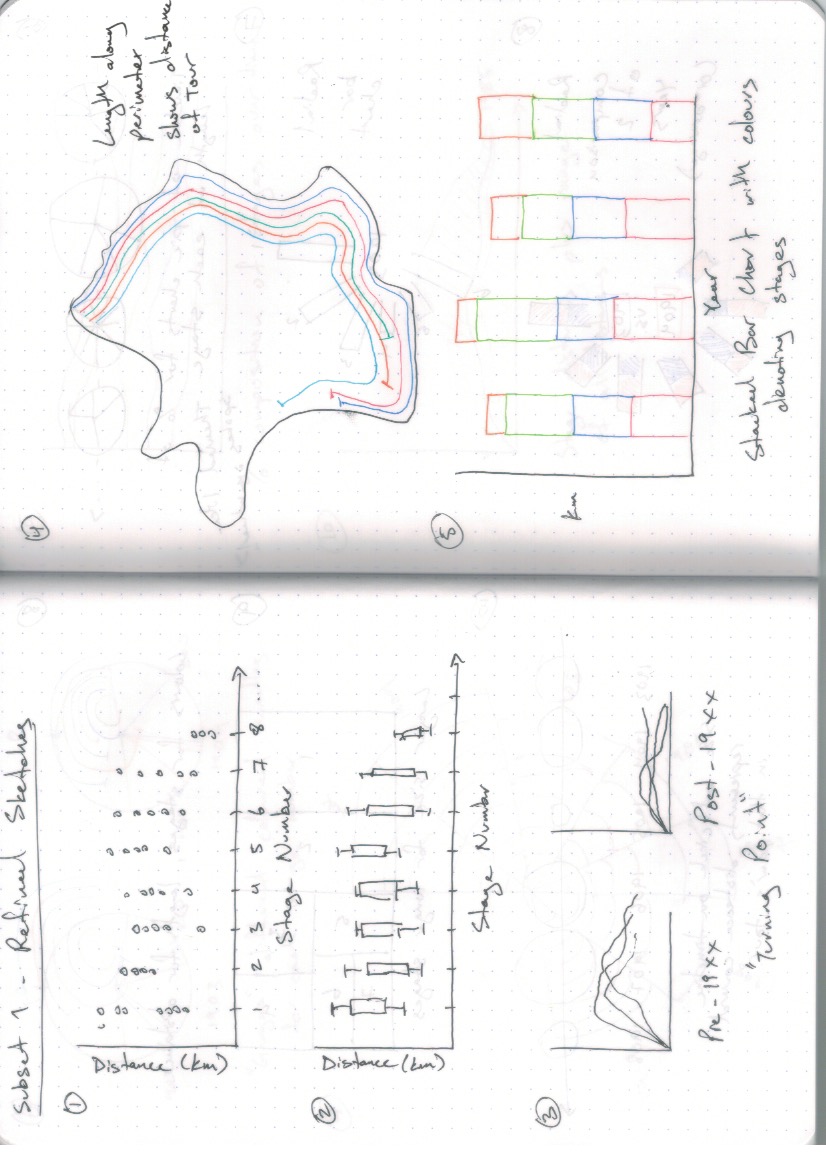 Subset 1 - Refined Sketches
①
Distance (km)
1 2 3 4 5 6 7 8
Stage Number
②
Distance (km)
Stage Number
③
Pre-19xx
Post-19xx
"Turning Point"
④
Length along
perimeter
shows distance
of Tour
⑤
km
Year
Stacked Bar Chart with colours
denoting stages